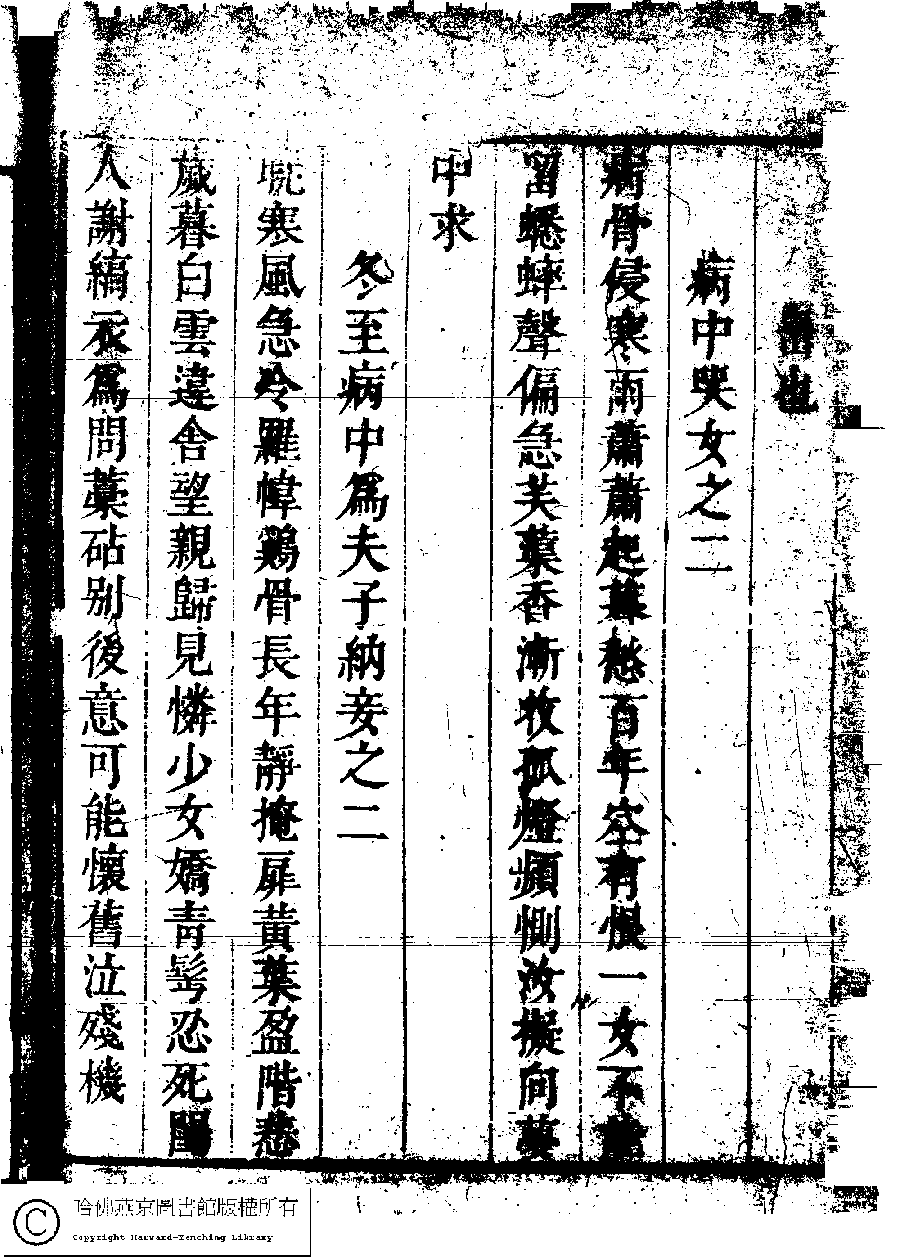 病中哭女之二
病骨侵寒雨蕭蕭起暮愁百年空有恨一女不
留蟋蟀聲偏急芙蕖香漸收孤燈頻惻汝擬向夢
中求
冬至病中爲夫子納妾之二
寒風急冷羅幃鷄骨長年靜掩扉黃葉盈階悲
歲暮白雲違舍望親歸見憐少女嬌青髩忍死
人謝縞衣爲問藁砧别後意可能懷舊泣殘機
哈佛燕京圖書館版權所有
Copyright Harvard-Yenching Library